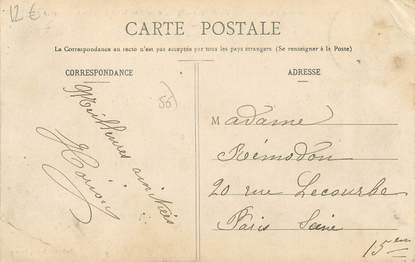 12 €
CARTE POSTALE
La Correspondance au recto n'est pas acceptée par tous les pays étrangers (Se renseigner à la Poste)
CORRESPONDANCE
55
Meilleures amitiés
ADRESSE
Madame
Rémodon
20 rue Lecourbe
Paris Seine
15 eme